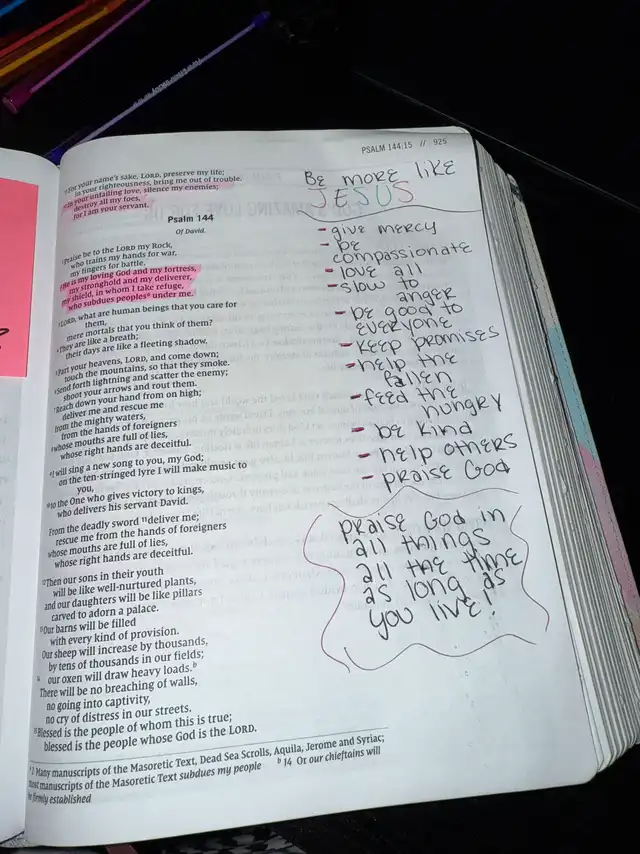 PSALM 144:15 // 925
11 For your name's sake, LORD, preserve my life;
in your righteousness, bring me out of trouble.
12 In your unfailing love, silence my enemies;
destroy all my foes,
for I am your servant.
Psalm 144
Of David.
1 Praise be to the LORD my Rock,
who trains my hands for war,
my fingers for battle.
2 He is my loving God and my fortress,
my stronghold and my deliverer,
my shield, in whom I take refuge,
who subdues peoples a under me.
3 LORD, what are human beings that you care for
them,
mere mortals that you think of them?
4 They are like a breath;
their days are like a fleeting shadow.
5 Part your heavens, LORD, and come down;
touch the mountains, so that they smoke.
6 Send forth lightning and scatter the enemy;
shoot your arrows and rout them.
7 Reach down your hand from on high;
deliver me and rescue me
from the mighty waters,
from the hands of foreigners
8 whose mouths are full of lies,
whose right hands are deceitful.
9 I will sing a new song to you, my God;
on the ten-stringed lyre I will make music to
you,
10 to the One who gives victory to kings,
who delivers his servant David.
From the deadly sword 11 deliver me;
rescue me from the hands of foreigners
whose mouths are full of lies,
whose right hands are deceitful.
12 Then our sons in their youth
will be like well-nurtured plants,
and our daughters will be like pillars
carved to adorn a palace.
13 Our barns will be filled
with every kind of provision.
Our sheep will increase by thousands,
by tens of thousands in our fields;
14 our oxen will draw heavy loads. b
There will be no breaching of walls,
no going into captivity,
no cry of distress in our streets.
15 Blessed is the people of whom this is true;
blessed is the people whose God is the LORD.
a 2 Many manuscripts of the Masoretic Text, Dead Sea Scrolls, Aquila, Jerome and Syriac;
most manuscripts of the Masoretic Text subdues my people b 14 Or our chieftains will
be firmly established
BE MORE LIKE
JESUS
- GIVE MERCY
- BE
COMPASSIONATE
- LOVE ALL
- SLOW TO
ANGER
- BE GOOD TO
EVERYONE
- KEEP PROMISES
- HELP THE
FALLEN
- FEED THE
HUNGRY
- BE KIND
- HELP OTHERS
- PRAISE GOD
PRAISE GOD IN
ALL THINGS
ALL THE TIME
AS LONG AS
YOU LIVE!